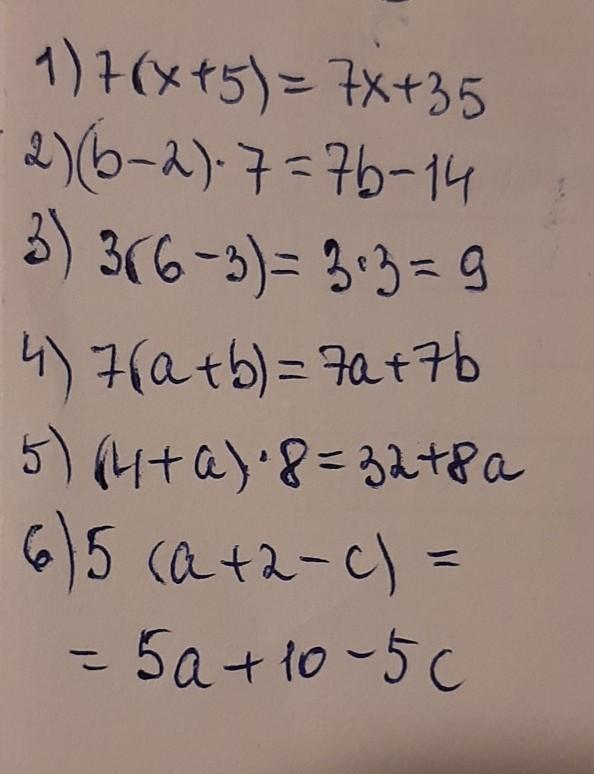 1) 7(x+5) = 7x+35
2) (b-2)·7 = 7b-14
3) 3(6-3) = 3·3 = 9
4) 7(a+b) = 7a+7b
5) (4+a)·8 = 32+8a
6) 5 (a+2-c) =
= 5a+10-5c